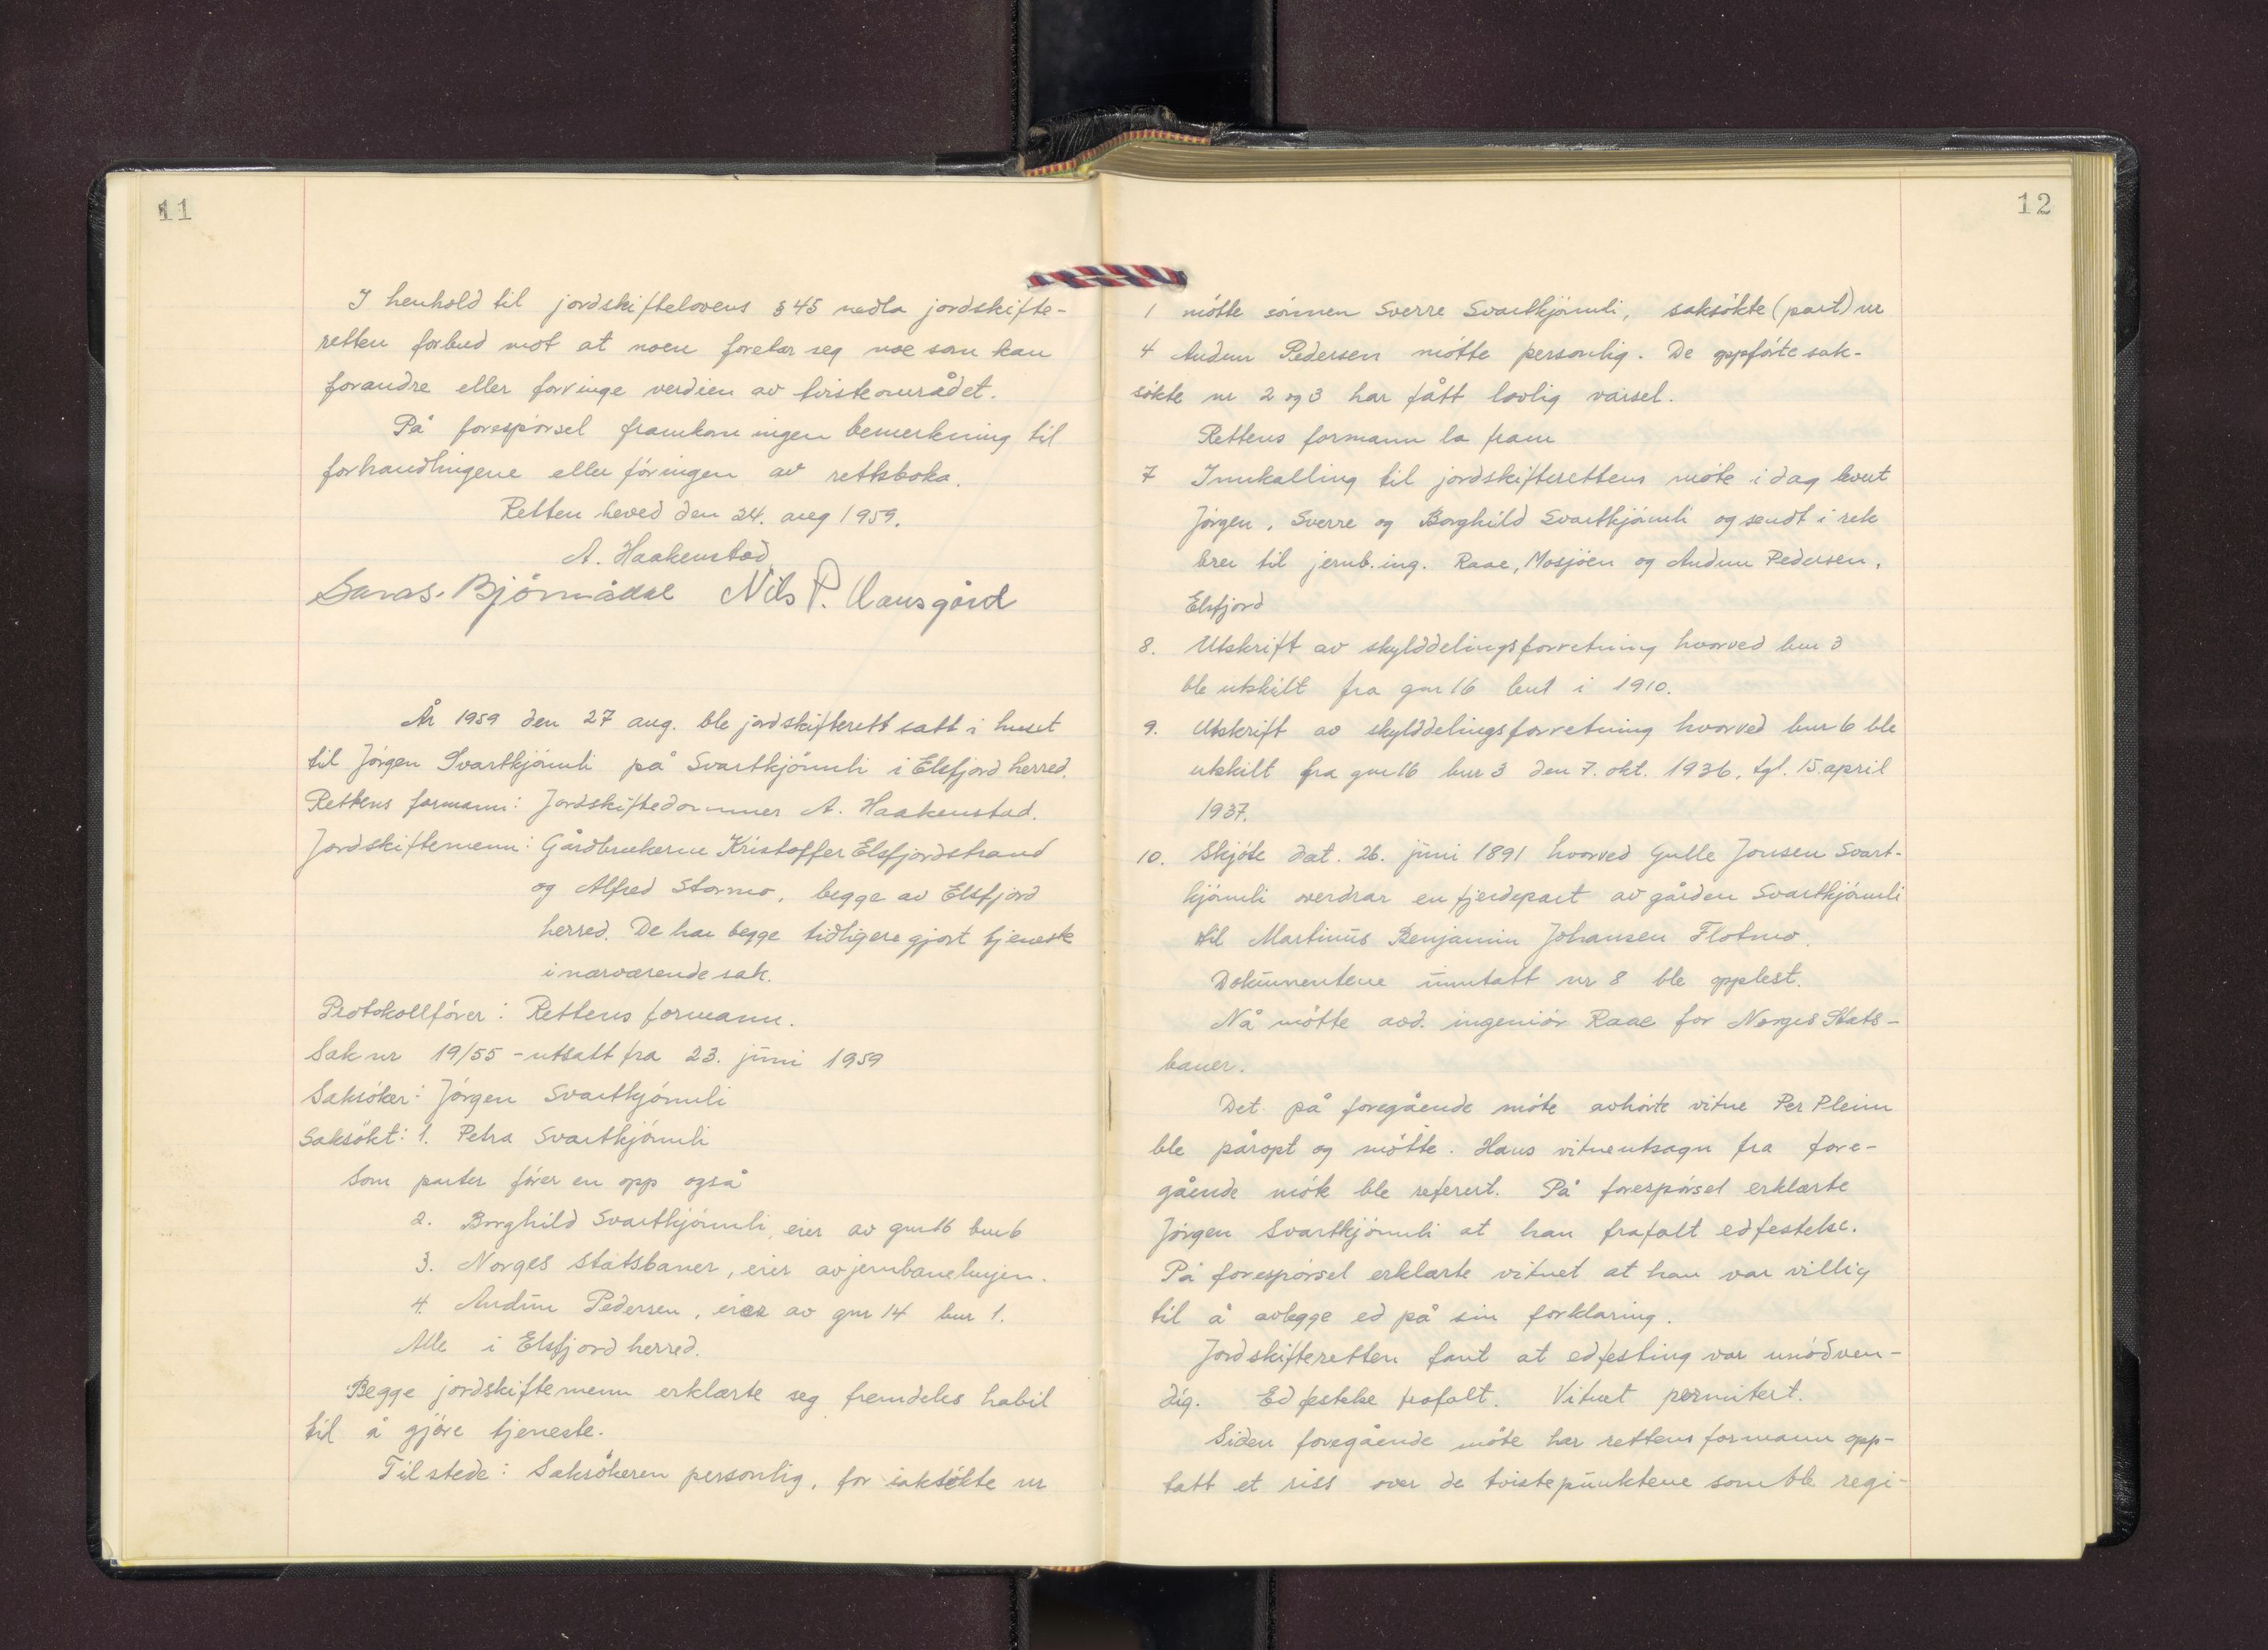 11
I henhold til jordskiftelovens § 45 nedla jordskifte-
retten forbud mot at noen foretar seg noe som kan
forandre eller forringe verdien av tvisteområdet.
På forespørsel framkom ingen bemerkning til
forhandlingene eller føringen av rettsboka.
Retten hevet den 24. aug 1959.
A. Haakenstad
Bjørnådal Nils P.
År 1959 den 27 aug. ble jordskifterett satt i huset
til Jørgen Svartkjønnli på Svartkjønnli i Elsfjord herred.
Rettens formann: Jordskiftedommer A. Haakenstad.
Jordskiftemenn: Gårdbrukerne Kristoffer Elsfjordstrand
og Alfred Stormo, begge av Elsfjord
herred. De har begge tidligere gjort tjeneste
i nærværende sak.
Protokollfører: Rettens formann.
Sak nr 19/55 - utsatt fra 23. juni 1959
Saksøker: Jørgen Svartkjønnli
Saksøkt: 1. Petra Svartkjønnli
Som parter fører en opp også
2. Borghild Svartkjønnli, eier av gnr 16 bnr 6
3. Norges Statsbaner, eier av jernbanelinjen.
4. Audun Pedersen, eier av gnr 14 bnr 1.
Alle i Elsfjord herred.
Begge jordskiftemenn erklærte seg fremdeles habil
til å gjøre tjeneste.
Tilstede: Saksøkeren personlig, for saksøkte nr
12
1 møtte sønnen Sverre Svartkjønnli, saksøkte (part) nr
4 Audun Pedersen møtte personlig. De oppførte sak-
søkte nr 2 og 3 har fått lovlig varsel.
Rettens formann la fram
7 Innkalling til jordskifterettens møte i dag
Jørgen, Sverre og Borghild Svartkjønnli og sendt i rek
brev til jernb.ing. Raae, Mosjøen og Audun Pedersen,
Elsfjord
8. Utskrift av skylddelingsforretning hvorved bnr 3
ble utskilt fra gnr 16 bnr 1 i 1910.
9. Utskrift av skylddelingsforretning hvorved bnr 6 ble
utskilt fra gnr 16 bnr 3 den 7. okt. 1936, tgl. 15. april
1937.
10. Skjøte dat. 26. juni 1891 hvorved Gulle Jonsen Svart-
kjønnli overdrar en fjerdepart av gården Svartkjønnli
til Martinus Benjamin Johansen Flotmo.
Dokumentene unntatt nr 8 ble opplest.
Nå møtte avd. ingeniør Raae for Norges Stats-
baner.
Det på foregående møte avhørte vitne Per Pleim
ble påropt og møtte. Hans vitneutsagn fra fore-
gående møte ble referert. På forespørsel erklærte
Jørgen Svartkjønnli at han frafalt edfestelse.
På forespørsel erklærte vitnet at han var villig
til å avlegge ed på sin forklaring.
Jordskifteretten fant at edfesting var unødven-
dig. Edfestelse frafalt. Vitnet permitert.
Siden foregående møte har rettens formann opp-
tatt et riss over de tvistepunktene som ble regi-